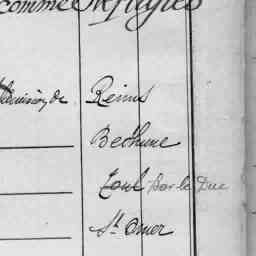 comme Réfugiés
de Reims
Bethune
Toul Bar le Duc
St Omer